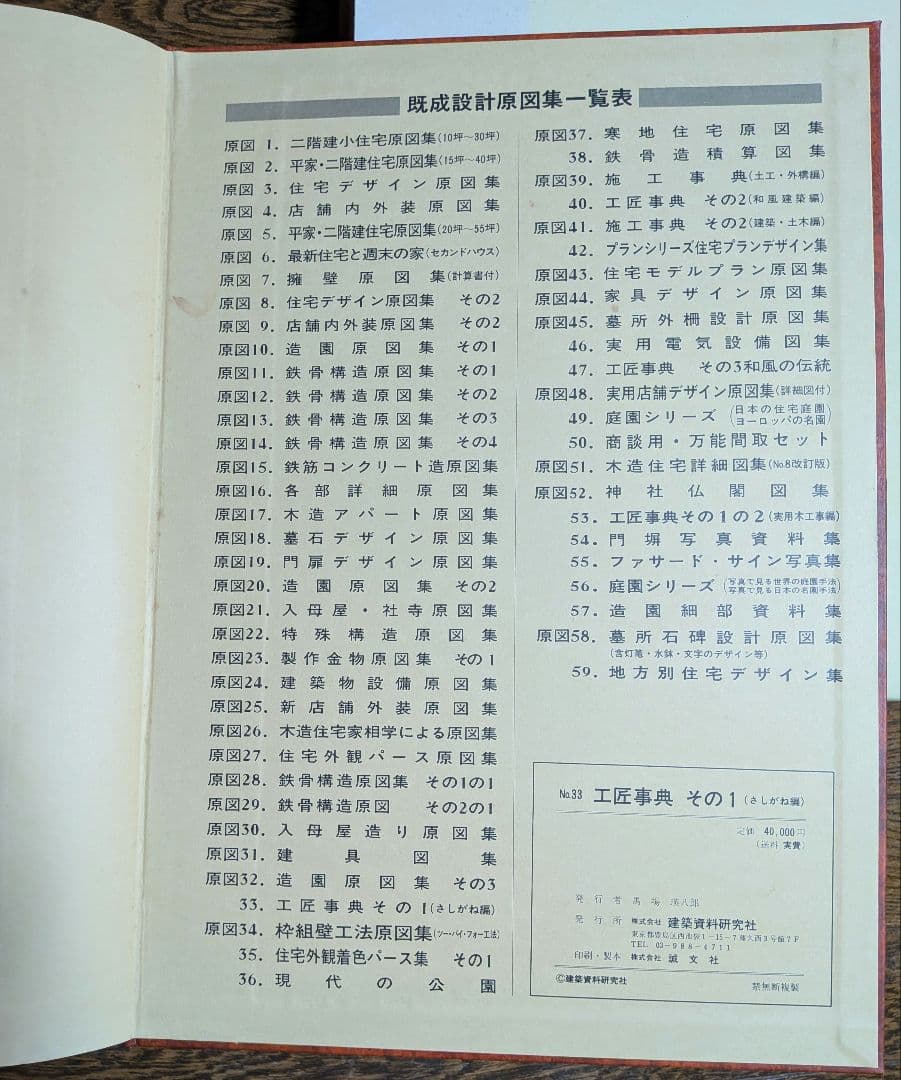 既成設計原図集一覧表
原図 1. 二階建小住宅原図集(10坪～30坪)
原図 2. 平家・二階建住宅原図集(15坪～40坪)
原図 3. 住宅デザイン原図集
原図 4. 店舗内外装原図集
原図 5. 平家・二階建住宅原図集(20坪～55坪)
原図 6. 最新住宅と週末の家(セカンドハウス)
原図 7. 擁壁原図集(計算書付)
原図 8. 住宅デザイン原図集 その2
原図 9. 店舗内外装原図集 その2
原図10. 造園原図集 その1
原図11. 鉄骨構造原図集 その1
原図12. 鉄骨構造原図集 その2
原図13. 鉄骨構造原図集 その3
原図14. 鉄骨構造原図集 その4
原図15. 鉄筋コンクリート造原図集
原図16. 各部詳細原図集
原図17. 木造アパート原図集
原図18. 墓石デザイン原図集
原図19. 門扉デザイン原図集
原図20. 造園原図集 その2
原図21. 入母屋・社寺原図集
原図22. 特殊構造原図集
原図23. 製作金物原図集 その1
原図24. 建築物設備原図集
原図25. 新店舗外装原図集
原図26. 木造住宅家相学による原図集
原図27. 住宅外観パース原図集
原図28. 鉄骨構造原図集 その1の1
原図29. 鉄骨構造原図 その2の1
原図30. 入母屋造り原図集
原図31. 建具図集
原図32. 造園原図集 その3
33. 工匠事典その1(さしがね編)
原図34. 枠組壁工法原図集(ツー・バイ・フォー工法)
35. 住宅外観着色パース集 その1
36. 現代の公園
原図37. 寒地住宅原図集
38. 鉄骨造積算図集
原図39. 施工事典(土工・外構編)
40. 工匠事典 その2(和風建築編)
原図41. 施工事典 その2(建築・土木編)
42. プランシリーズ住宅プランデザイン集
原図43. 住宅モデルプラン原図集
原図44. 家具デザイン原図集
原図45. 墓所外柵設計原図集
46. 実用電気設備図集
47. 工匠事典 その3和風の伝統
原図48. 実用店舗デザイン原図集(詳細図付)
49. 庭園シリーズ(日本の住宅庭園
ヨーロッパの名園)
50. 商談用・万能間取セット
原図51. 木造住宅詳細図集(No.8改訂版)
原図52. 神社仏閣図集
53. 工匠事典その1の2(実用木工事編)
54. 門塀写真資料集
55. ファサード・サイン写真集
56. 庭園シリーズ(写真で見る世界の庭園手法
写真で見る日本の名園手法)
57. 造園細部資料集
原図58. 墓所石碑設計原図集
(含灯篭・水鉢・文字のデザイン等)
59. 地方別住宅デザイン集
No.33 工匠事典 その1(さしがね編)
定価 40,000円
(送料 実費)
発行者 馬場 八郎
発行所 株式会社 建築資料研究社
東京都豊島区西池袋1-15-7藤久西3号館7F
TEL 03-986-4711
印刷・製本 株式会社 誠文社
©建築資料研究社
禁無断複製